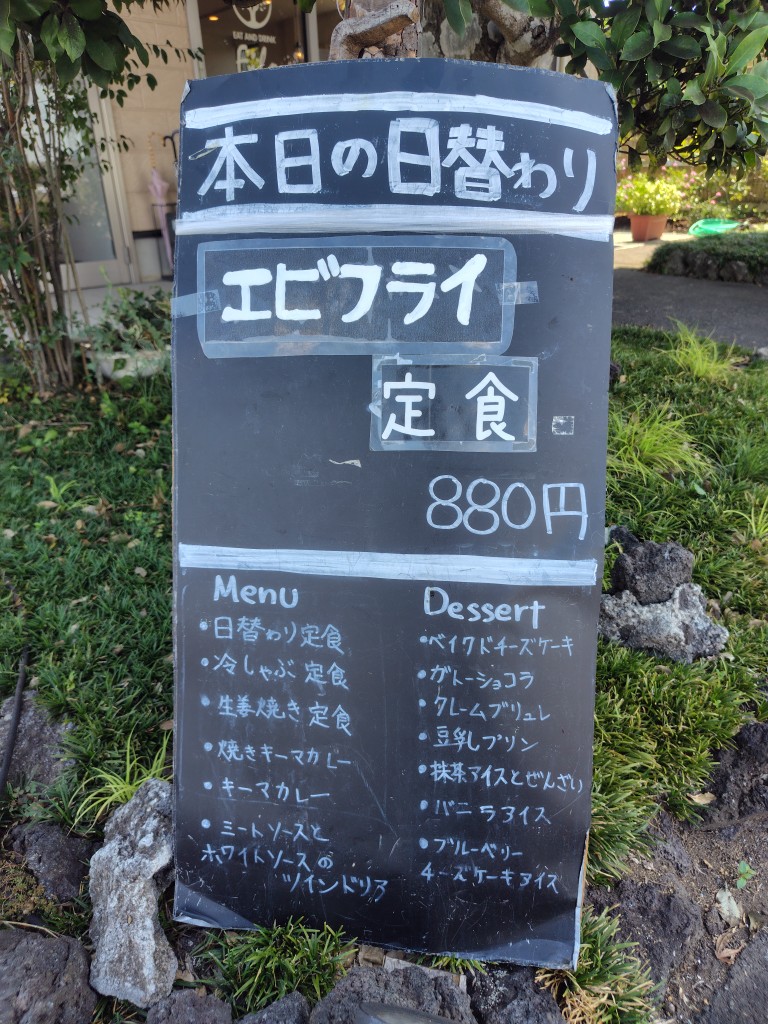 EAT AND DRINK
本日の日替わり
エビフライ
定食
880円
Menu
・日替わり定食
・冷しゃぶ定食
・生姜焼き定食
・焼きキーマカレー
・キーマカレー
・ミートソースと
ホワイトソースの
ツインドリア
Dessert
・ベイクドチーズケーキ
・ガトーショコラ
・クレームブリュレ
・豆乳プリン
・抹茶アイスとぜんざい
・バニラアイス
・ブルーベリー
チーズケーキアイス